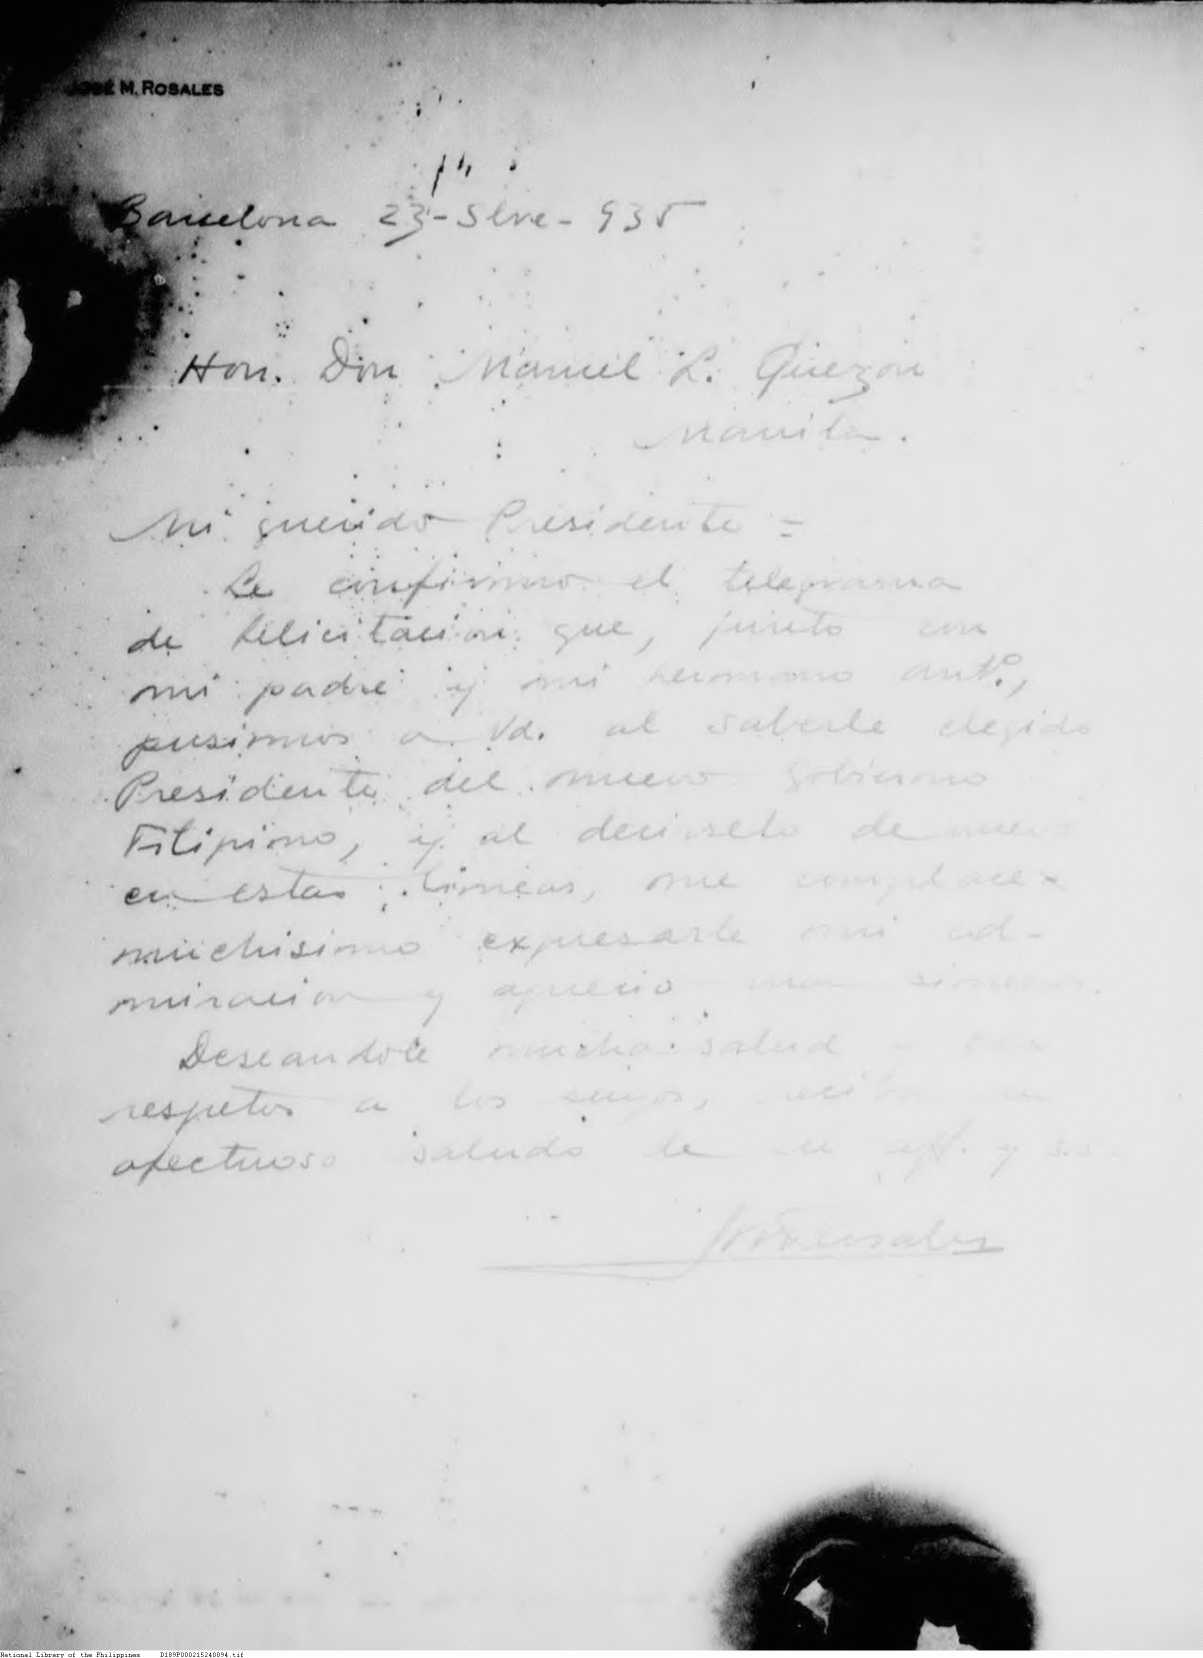 JOSÉ M. ROSALES
Barcelona 23-Sbre-935
Hon. Don Manuel L. Quezon
Manila.
Mi querido Presidente =
Le confirmo el telegrama
de felicitacion que, junto con
mi padre y mi hermano Antº,
pusimos a Vd. al saberle elegido
Presidente del nuevo gobierno
Filipino, y al decirselo de nuevo
en estas lineas, me complace
muchisimo expresarle mi ad-
miracion y aprecio mas sinceros.
Deseandole mucha salud
respetos a los suyos, reciba un
afectuoso saludo de su aff. y s.s.
National Library of the Philippines D189P000215240894.tif